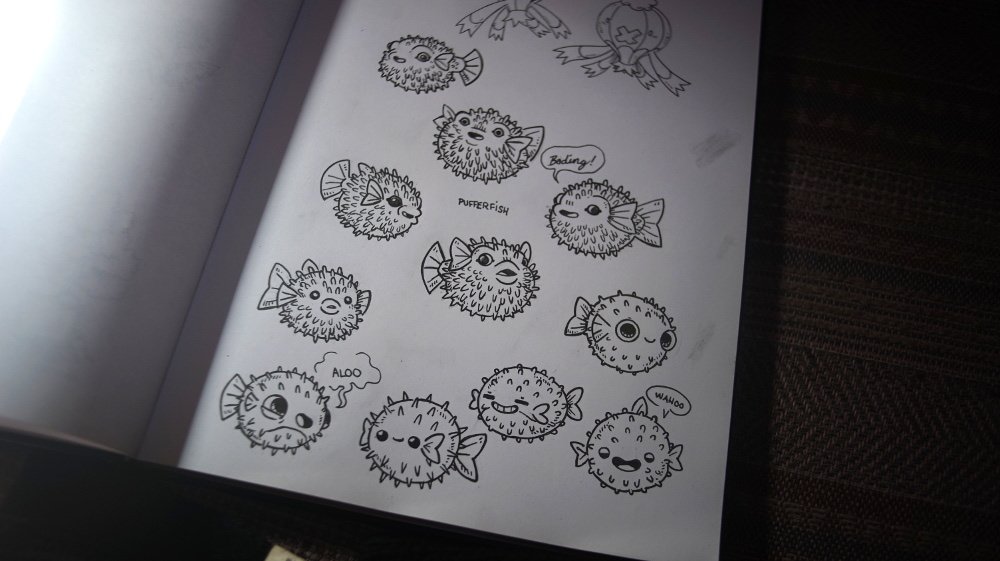 Boding!
PUFFERFISH
ALOO
WAHOO